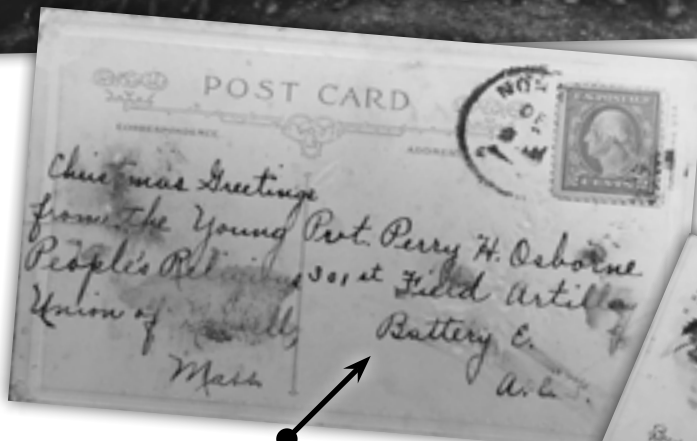 POST CARD
CORRESPONDENCE
ADDRESS
Christmas Greetings
from the Young
People's Religious
Union of
Mass
Pvt. Perry H. Osborne
301st Field Artillery
Battery E.